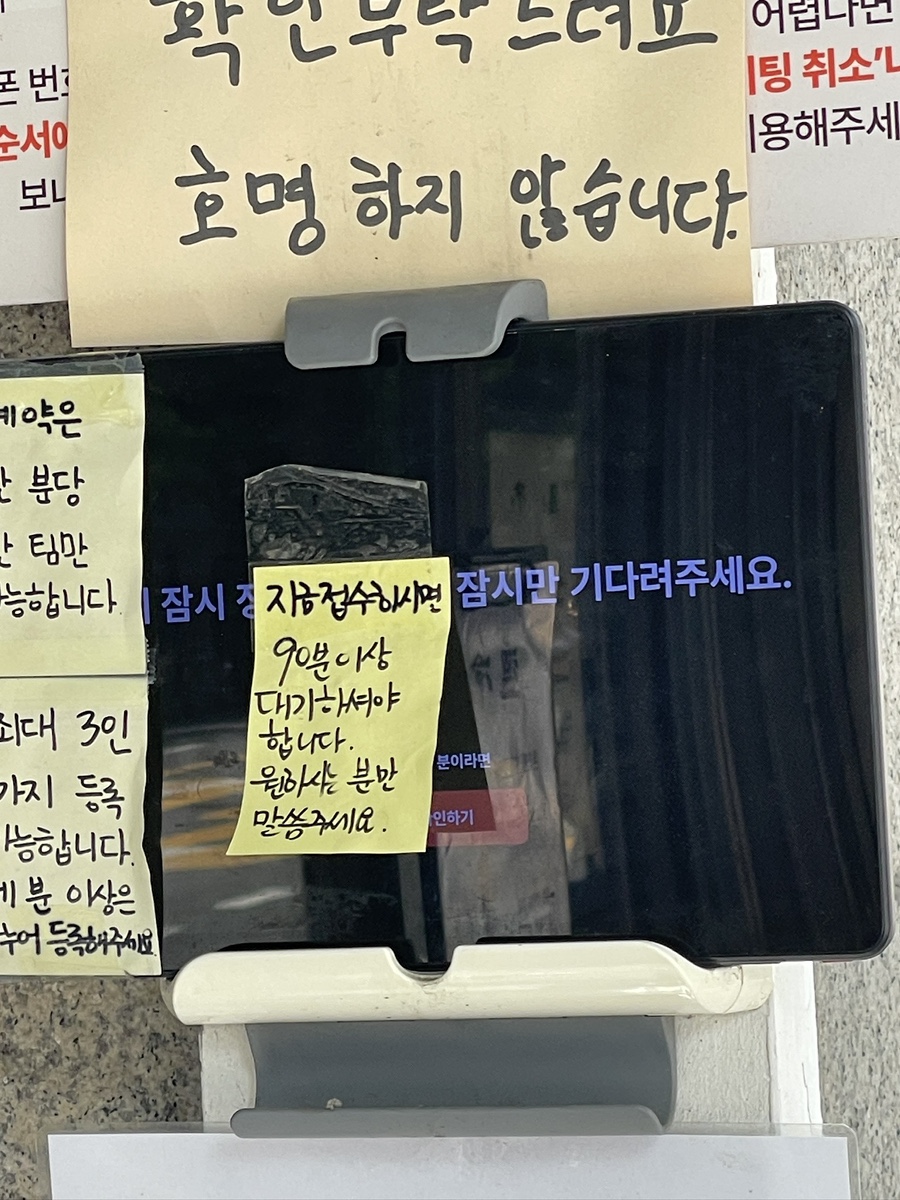 확인부탁드려요
호명 하지 않습니다.
어렵다면
팅 취소'나
이용해주세
폰 번호
순서에
보니
예약은
분당
팀만
가능합니다.
최대 3인
까지 등록
가능합니다.
네 분 이상은
나누어 등록해주세요
잠시 잠시만 기다려주세요.
지금접수하시면
90분이상
대기하셔야
합니다.
원하시는 분만
말씀주세요.
분이라면
확인하기